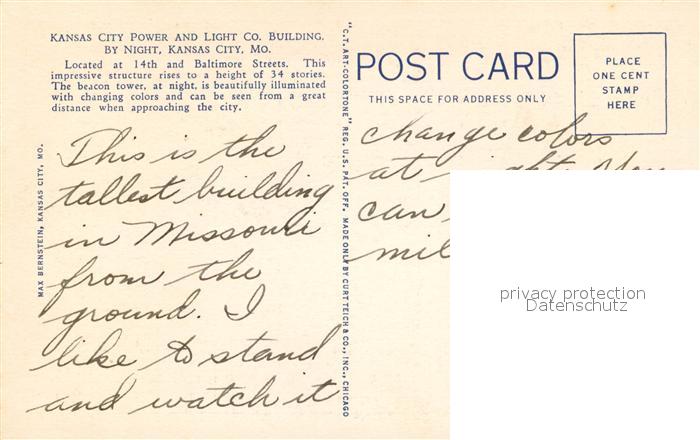 KANSAS CITY POWER AND LIGHT CO. BUILDING.
BY NIGHT, KANSAS CITY, MO.
Located at 14th and Baltimore Streets. This
impressive structure rises to a height of 34 stories.
The beacon tower, at night, is beautifully illuminated
with changing colors and can be seen from a great
distance when approaching the city.
MAX BERNSTEIN, KANSAS CITY, MO.
This is the
tallest building
in Missouri
from the
ground. I
like to stand
and watch it
"C.T. ART-COLORTONE" REG. U.S. PAT. OFF. MADE ONLY BY CURT TEICH & CO., INC., CHICAGO
POST CARD
THIS SPACE FOR ADDRESS ONLY
PLACE
ONE CENT
STAMP
HERE
change colors
at
can
privacy protection
Datenschutz